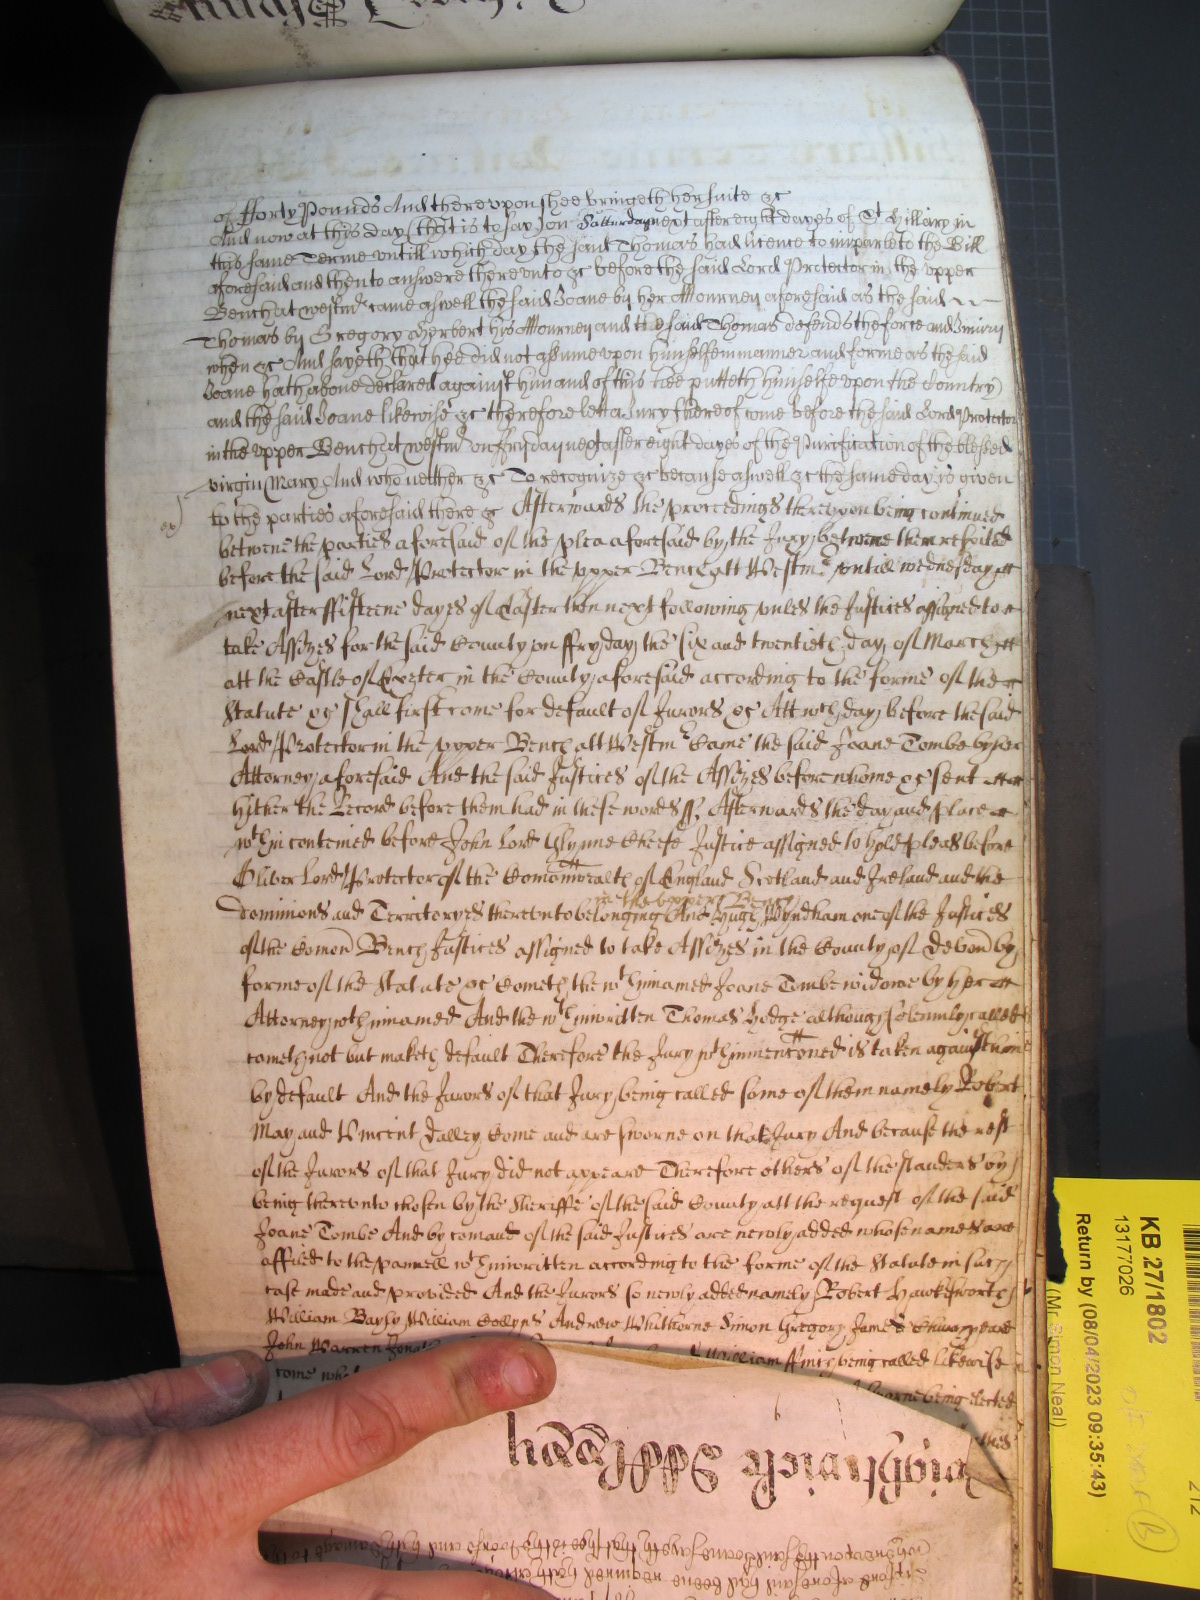 of fforty Pounds And there upon shee bringeth her suite &c
And now at this day (that is to say) on Satterday next after eight dayes of St Hillary in
this same Terme untill which day the said Thomas had licence to imparle to the Bill
aforesaid and then to answere there unto &c before the said Lord Protector in the upper
Bench at Westmr came aswell the said Joane by her Attourney aforesaid as the said
Thomas by Gregory Herbert his Attourney and the said Thomas defends the force and Iniury
when &c And sayeth that hee did not assume upon himselfe in manner and forme as the said
Joane hath above declared against him and of this hee putteth himselfe upon the Country
and the said Joane likewise &c therefore lett a Jury thereof come before the said Lord Protector
in the upper Bench at Westmr on fryday next after eight dayes of the Purification of the blessed
virgin Mary And who neither &c To recognize &c because aswell &c the same day is given
to the parties aforesaid there &c Afterwards the proceedings thereupon being continued
betweene the parties aforesaid of the plea aforesaid by the Jury betweene them respited
before the said Lord Protector in the upper Bench att Westmr untill wednesday
next after ffifteene dayes of Easter then next following unles the Justices assigned to
take Assizes for the said County on ffryday the six and twentieth day of March
att the Castle of Exeter in the County aforesaid according to the forme of the
Statute &c shall first come for default of Jurors &c Att wch day before the said
Lord Protector in the upper Bench att Westmr Came the said Joane Tombe by her
Attorney aforesaid And the said Justices of the Assizes before whome &c sent
hither the Record before them had in these words ss. Afterwards the day and place
wthin conteined before John Lord Glynne Cheefe Justice assigned to hold pleas before
Oliver Lord Protector of the Comonwealth of England Scotland and Ireland and the
in the upper Bench
dominions and Territoryes thereunto belonging And Hugh Wyndham one of the Justices
of the Comon Bench Justices assigned to take Assizes in the County of Devon by
forme of the Statute &c Cometh the wthinnamed Joane Tombe widowe by her
Attorney wthinnamed And the wthinwritten Thomas Hodge although solemnly called
cometh not but maketh default Therefore the Jury wthinmentioned is taken against him
by default And the Jurors of that Jury being called some of them namely Robert
May and Vincent Dalley Come and are sworne on that Jury And because the rest
of the Jurors of that Jury did not appeare Therefore others of the standers by
being thereunto chosen by the Sheriffe of the said County att the request of the said
Joane Tombe And by comand of the said Justices are newly added whose names are
affiled to the pannell wthinwritten according to the forme of the Statute in such
case made and provided And the Jurors so newly added namely Robert Hawkesworth
William Bayly William Collyns Andrew Whithorne Simon Gregory James
John Warren William ffinch being called likewise
come
being elected
KB 27/1802
13177026
Return by (08/04/2023 09:35:43)
(Mr Simon Neal)
212